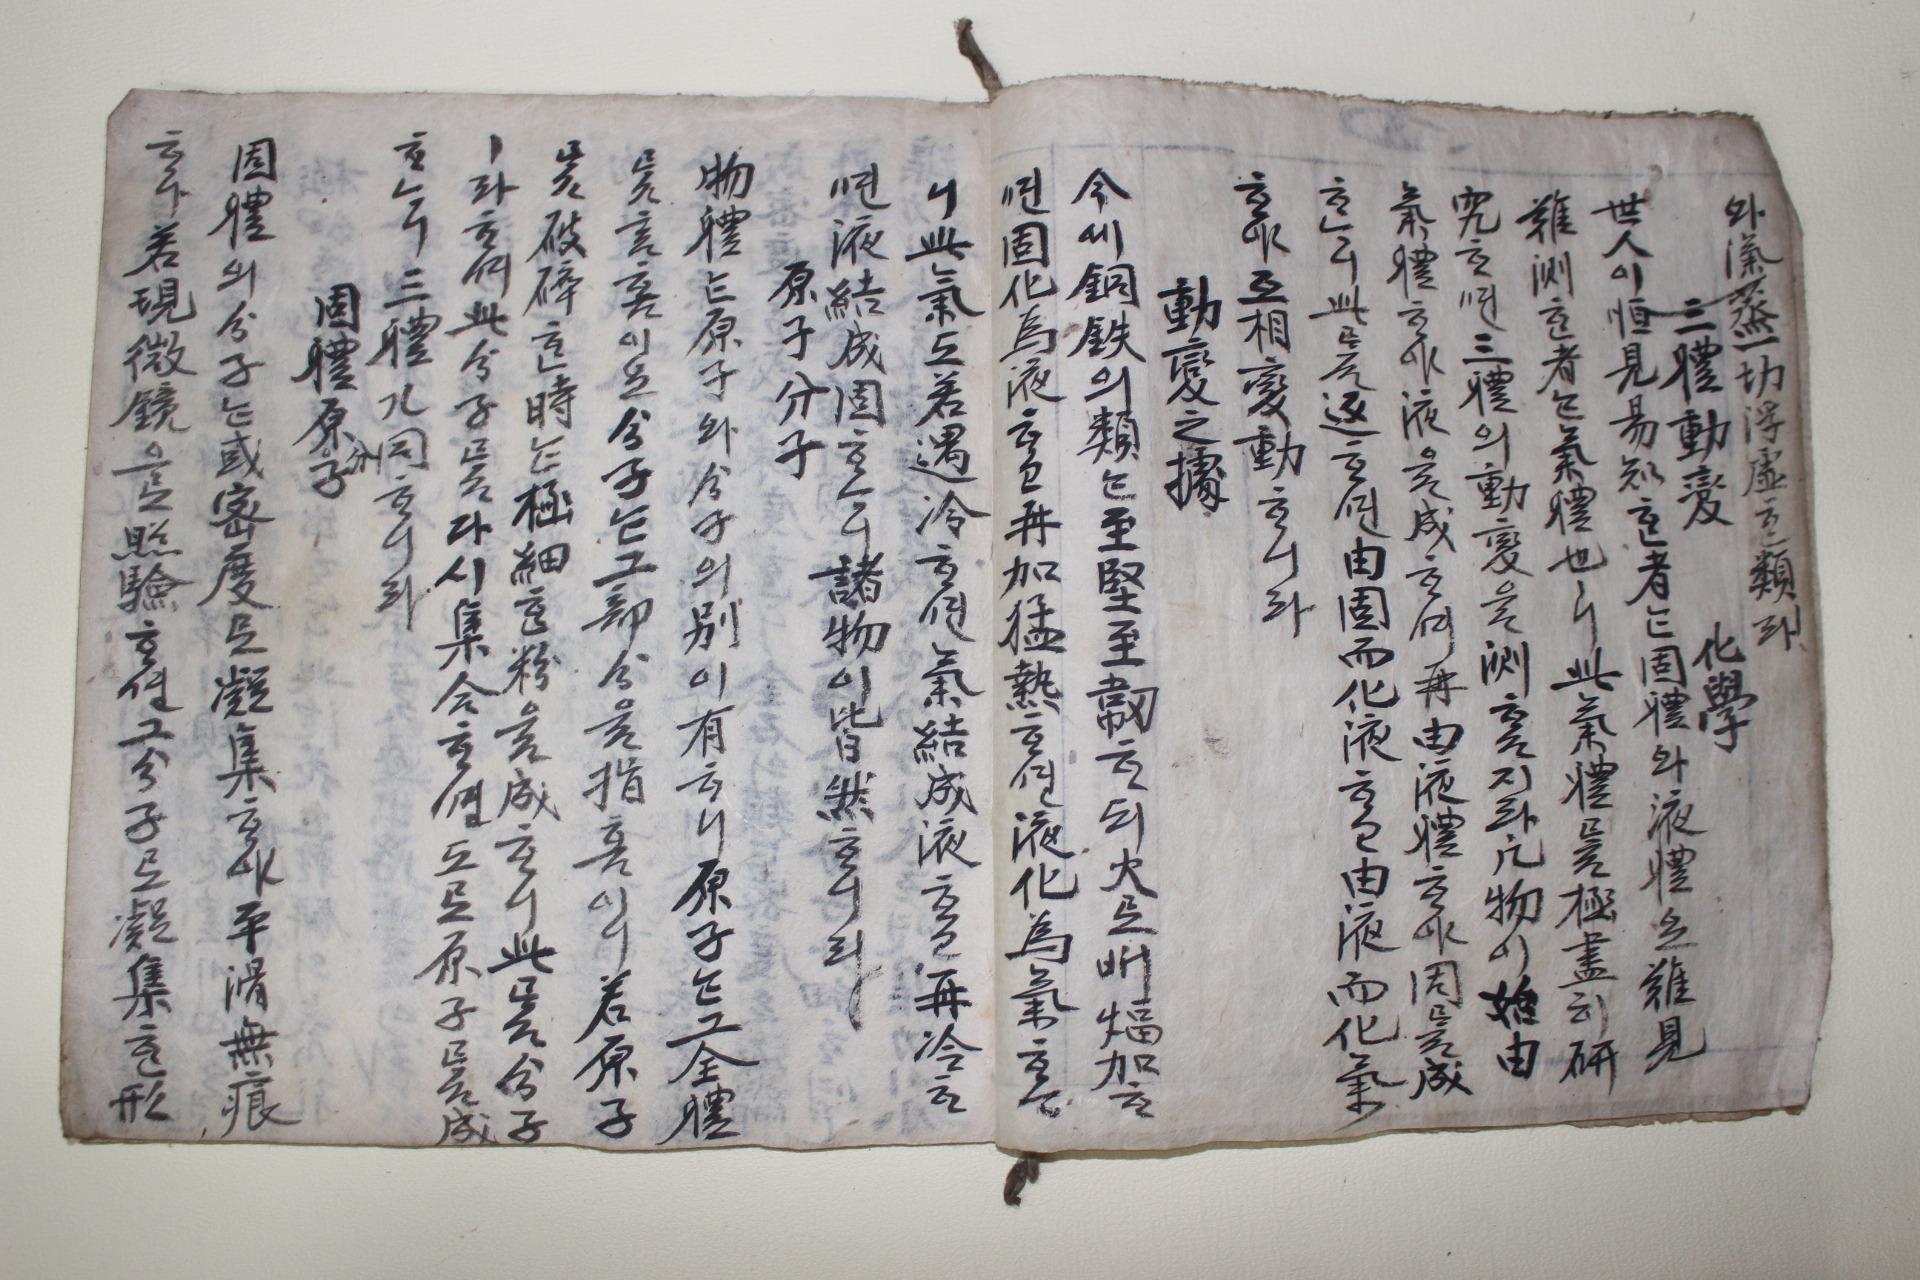 와 濛蒸一切 浮虛ᄒᆞᆫ 類라
三體動変 化學
世人이 恒見易知ᄒᆞᆫ 者ᄂᆞᆫ 固體와 液體오 難見
難測ᄒᆞᆫ 者ᄂᆞᆫ 氣體也ㅣ니 此 氣體ᄅᆞᆯ 極盡히 研
究ᄒᆞ면 三體의 動變을 測ᄒᆞᆯ지라 凡物이 始由
氣體ᄒᆞ야 液을 成ᄒᆞ며 再由液體ᄒᆞ야 固ᄅᆞᆯ 成
ᄒᆞᄂᆞ니 此ᄅᆞᆯ 逐ᄒᆞ면 由固而化液ᄒᆞ고 由液而化氣
ᄒᆞ야 互相變動ᄒᆞ니라
動變之據
今에 銅鉄의 類ᄂᆞᆫ 至堅至韌ᄒᆞ되 火로 煏加ᄒᆞ
면 固化爲液ᄒᆞ고 再加猛熱ᄒᆞ면 液化爲氣ᄒᆞᄂᆞ
니 此 氣도 若遇冷ᄒᆞ면 氣結成液ᄒᆞ고 再冷ᄒᆞ
면 液結成固ᄒᆞᄂᆞ니 諸物이 皆然ᄒᆞ니라
原子分子
物體ᄂᆞᆫ 原子와 分子의 別이 有ᄒᆞ니 原子ᄂᆞᆫ 그 全體
ᄅᆞᆯ 言홈이오 分子ᄂᆞᆫ 그 部分을 指홈이니 若 原子
ᄅᆞᆯ 破碎ᄒᆞᆫ 時ᄂᆞᆫ 極細ᄒᆞᆫ 粉을 成ᄒᆞ니 此ᄅᆞᆯ 分子
ㅣ라 ᄒᆞ며 此 分子ᄅᆞᆯ 다시 集合ᄒᆞ면 도로 原子ᄅᆞᆯ 成
ᄒᆞᄂᆞ니 三體가 同ᄒᆞ니라
固體原分子
固體의 分子ᄂᆞᆫ 或 密度로 凝集ᄒᆞ야 平滑無痕
ᄒᆞ나 若 現微鏡으로 照驗ᄒᆞ면 그 分子로 凝集ᄒᆞᆫ 形